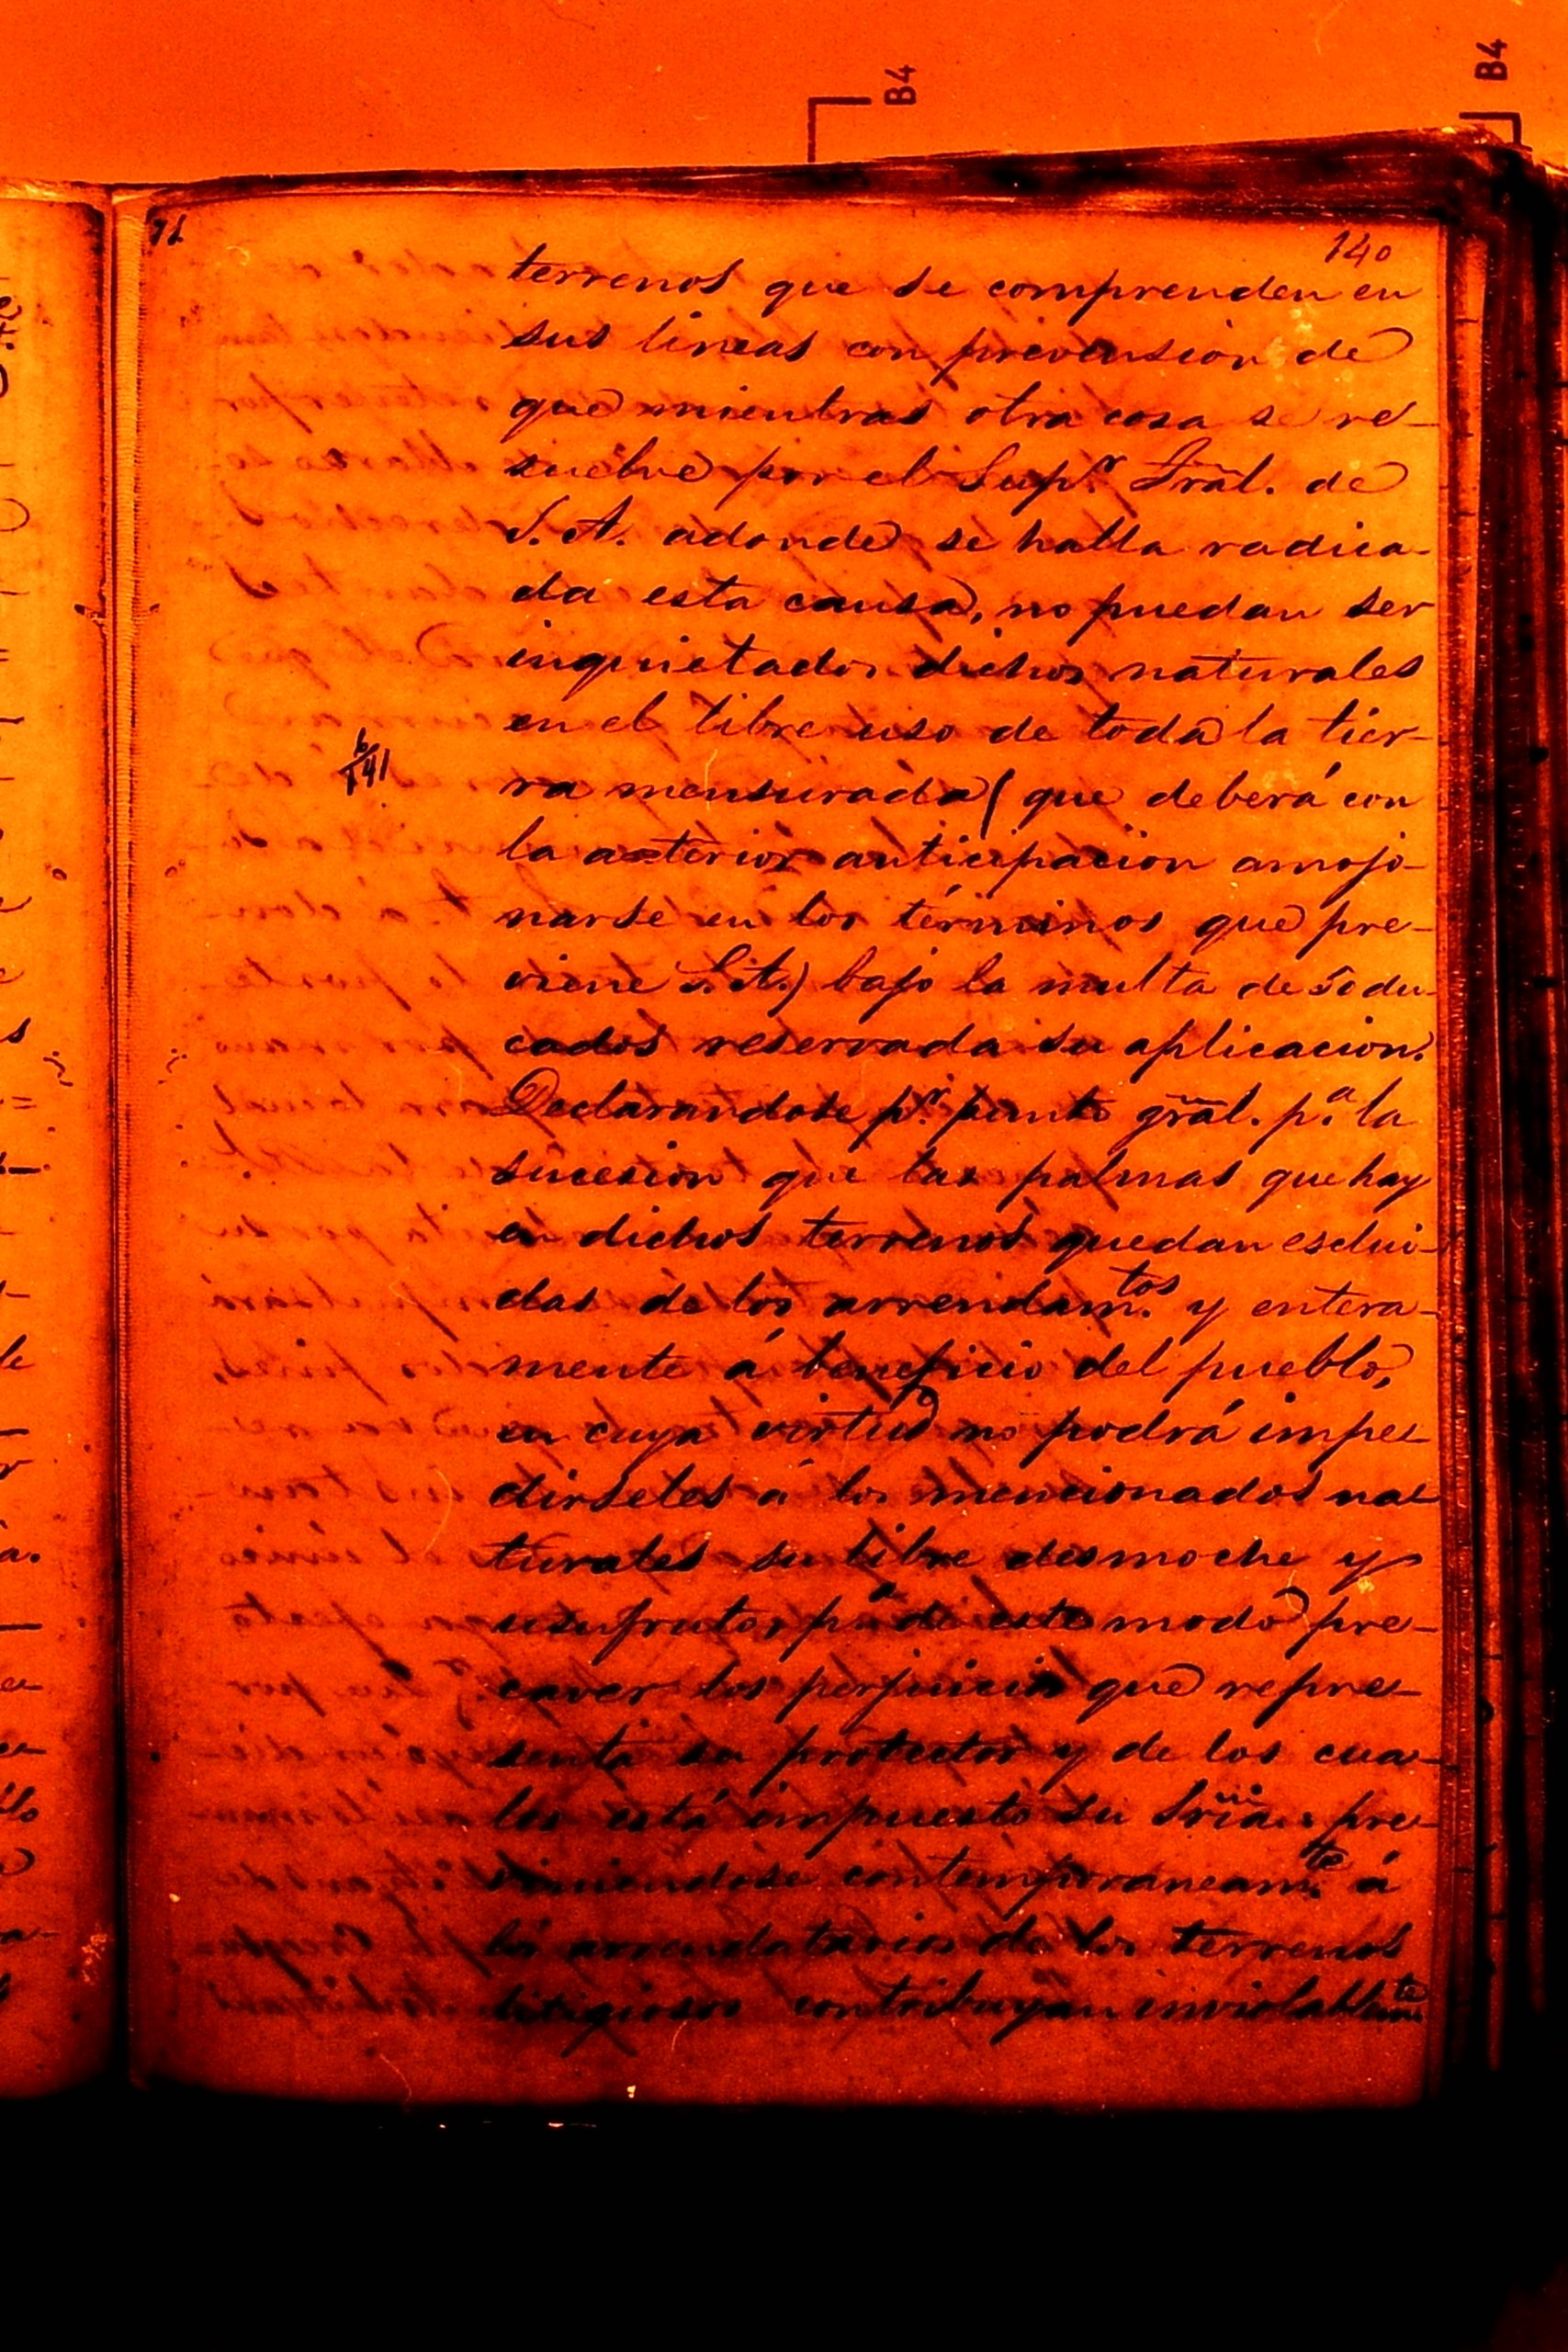 B4
B4
71
140
terrenos que se comprenden en
sus lineas con prevension de
que mientras otra cosa se re-
suelve por el Sup.r Tral. de
S. A. adonde se halla radica-
da esta causa, no puedan ser
inquietados dichos naturales
en el libre uso de toda la tier-
6/141
ra mensurada (que deberá con
la anterior anticipacion amojo-
narse en los términos que pre-
viene S. A.) bajo la multa de 50 du-
cados reservada su aplicacion.
Declarandose p.r punto gral. p.a la
sucesion que las palmas que hay
en dichos terrenos quedan esclui-
das de los arrendam.tos y entera-
mente á beneficio del pueblo,
en cuya virtud no podrá impe-
dirseles á los mencionados na-
turales su libre desmoche y
usufruto, p.a de este modo pre-
caver los perjuicios que repre-
senta su protector y de los cua-
les está impuesto su Sria. pre-
viniendose contemporaneam.te á
los arrendatarios de los terrenos
litigiosos contribuyan inviolablem.te